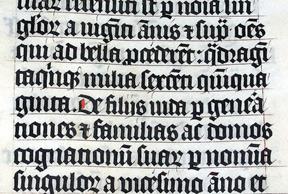 suaꝝ recensiti sūt ꝑ noīa sin
guloꝝ a uigīti ānis ⁊ sup̄ · oēs
qui ad bella ꝓcederēt : q̄dragī
taqīnqꝫ milia sexcēti quinqua
ginta. De filijs iuda ꝑ genera
tiones ⁊ familias ac domos
cognationū suaꝝ ꝑ nomīa
singuloꝝ a uicesimo āno et